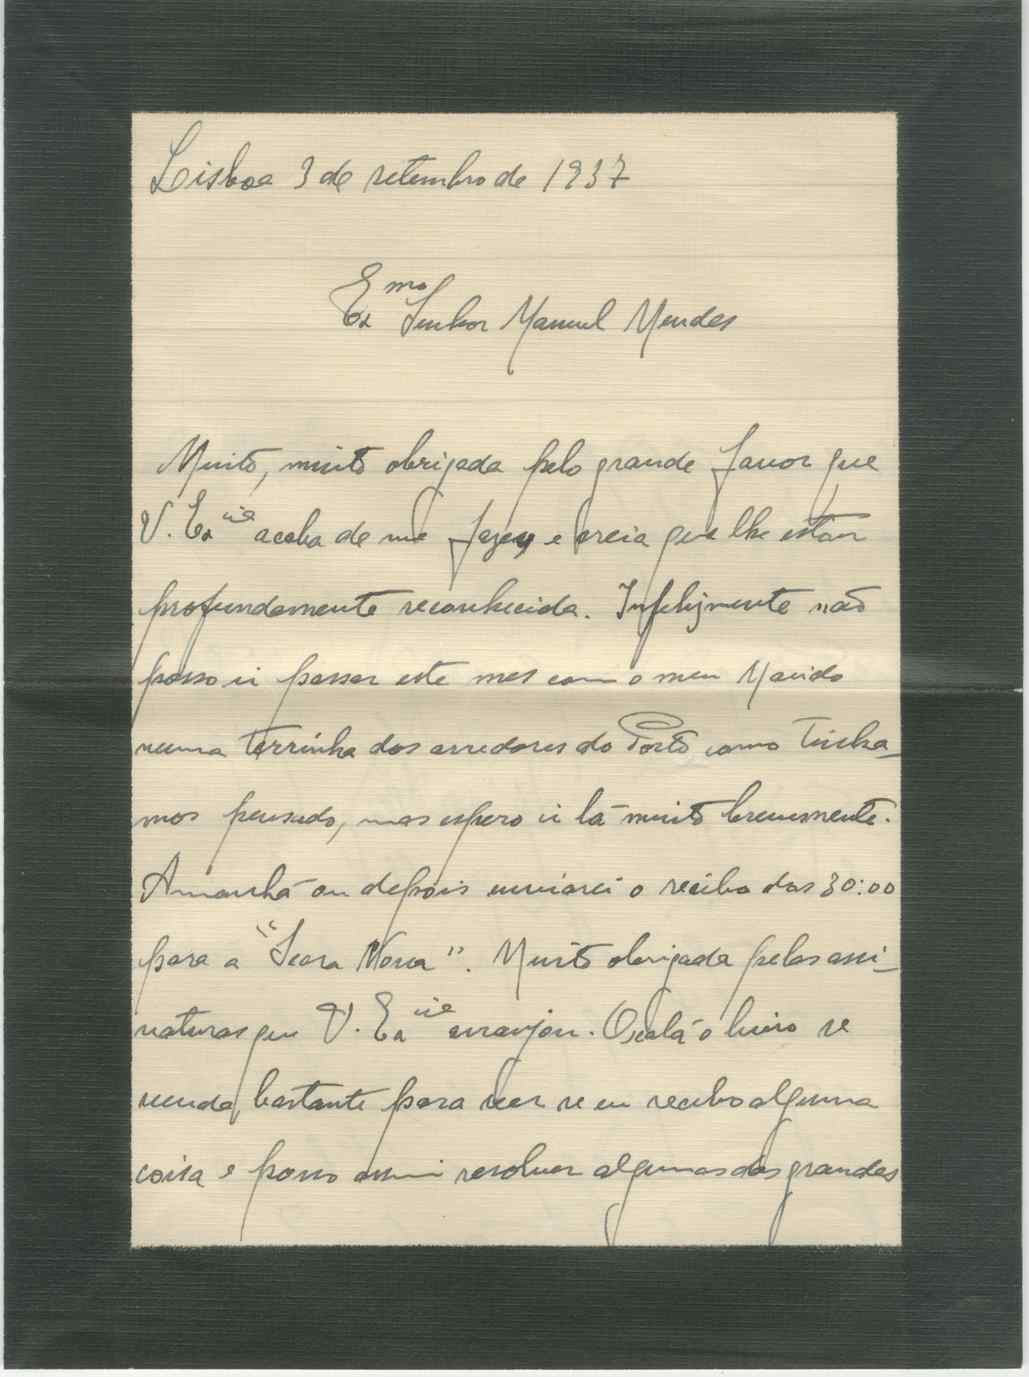 Lisboa 3 de setembro de 1937
Exmo Senhor Manuel Mendes
Muito, muito obrigada pelo grande favor que
V. Excia acaba de me fazer, e creia que lhe estou
profundamente reconhecida. Infelizmente não
posso ir passar este mes com o meu Marido
numa terrinha dos arredores do Porto, como tinha-
mos pensado, mas espero ir lá muito brevemente.
Amanhã ou depois enviarei o recibo dos 30:00
para a "Seara Nova". Muito obrigada pelas assi-
naturas que V. Excia arranjou. Oxalá o livro se
venda bastante para ver se eu recebo alguma
coisa e posso assim resolver algumas das grandes